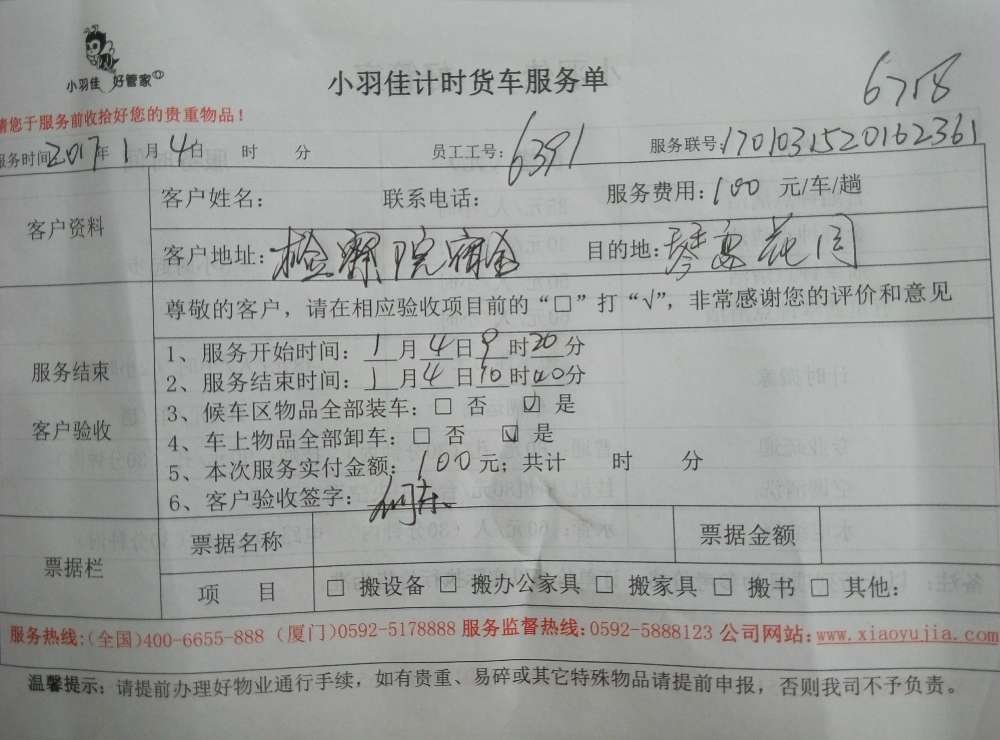 小羽佳 好管家
小羽佳计时货车服务单
6758
请您于服务前收拾好您的贵重物品！
服务时间2017年1月4日 时 分 员工工号：6391 服务联号：1701031520162361
客户资料
客户姓名： 联系电话： 服务费用：100 元/车/趟
客户地址：检察院宿舍 目的地：琴安花园
尊敬的客户，请在相应验收项目前的“□”打“√”，非常感谢您的评价和意见
服务结束
客户验收
1、服务开始时间：1月4日9时20分
2、服务结束时间：1月4日10时40分
3、候车区物品全部装车：□ 否 ☑ 是
4、车上物品全部卸车：□ 否 ☑ 是
5、本次服务实付金额：100元；共计 时 分
6、客户验收签字：
票据栏
票据名称 票据金额
项 目 □ 搬设备 □ 搬办公家具 □ 搬家具 □ 搬书 □ 其他：
服务热线：(全国)400-6655-888（厦门)0592-5178888 服务监督热线：0592-5888123 公司网站：www.xiaoyujia.com
温馨提示：请提前办理好物业通行手续，如有贵重、易碎或其它特殊物品请提前申报，否则我司不予负责。